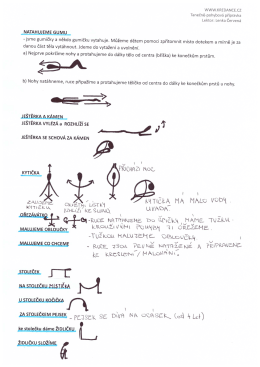 WWW.KPCDANCE.CZ
Tanečně pohybová přípravka
Lektor: Lenka Černená
NATAHUJEME GUMU
- jsme gumičky a někdo gumičku vytahuje. Můžeme dětem pomoci zpřítomnit místo dotekem a mírně je za
danou část těla vytáhnout. Jdeme do vytažení a uvolnění.
a) Nejprve pokrčíme nohy a protahujeme do dálky tělo od centra (bříška) ke konečkům prstů.
b) Nohy natáhneme, ruce připažíme a protahujeme tělíčko od centra do dálky ke konečkům prstů u nohy.
JEŠTĚRKA A KÁMEN
JEŠTĚRKA VYLEZÁ A ROZHLÍŽÍ SE
JEŠTĚRKA SE SCHOVÁ ZA KÁMEN
PŘICHÁZÍ NOC
KYTIČKA
KYTIČKA MÁ MÁLO VODY
UVADÁ
ZALIJEME
KYTIČKU
LÍSTKY
OŘEZÁVÁTKO
- RUCE NATÁHNEME DO ŠPIČKY, MÁME TUŽKU
KROUŽIVÝMI POHYBY JI OŘEŽEME.
MALUJEME OBLOUČKY
- TUŽKOU MALUJEME OBLOUČKY
MALUJEME CO CHCEME
- RUCE JSOU PEVNĚ NATAŽENÉ A PŘIPRAVENÉ
KE KRESLENÍ / MALOVÁNÍ.
STOLEČEK
NA STOLEČKU MISTIČKA
U STOLEČKU KOČIČKA
ZA STOLEČKEM PEJSEK - PEJSEK SE DÍVÁ NA OCÁSEK (od 4 let)
ke stolečku dáme ŽIDLIČKU
ŽIDLIČKU SLOŽÍME